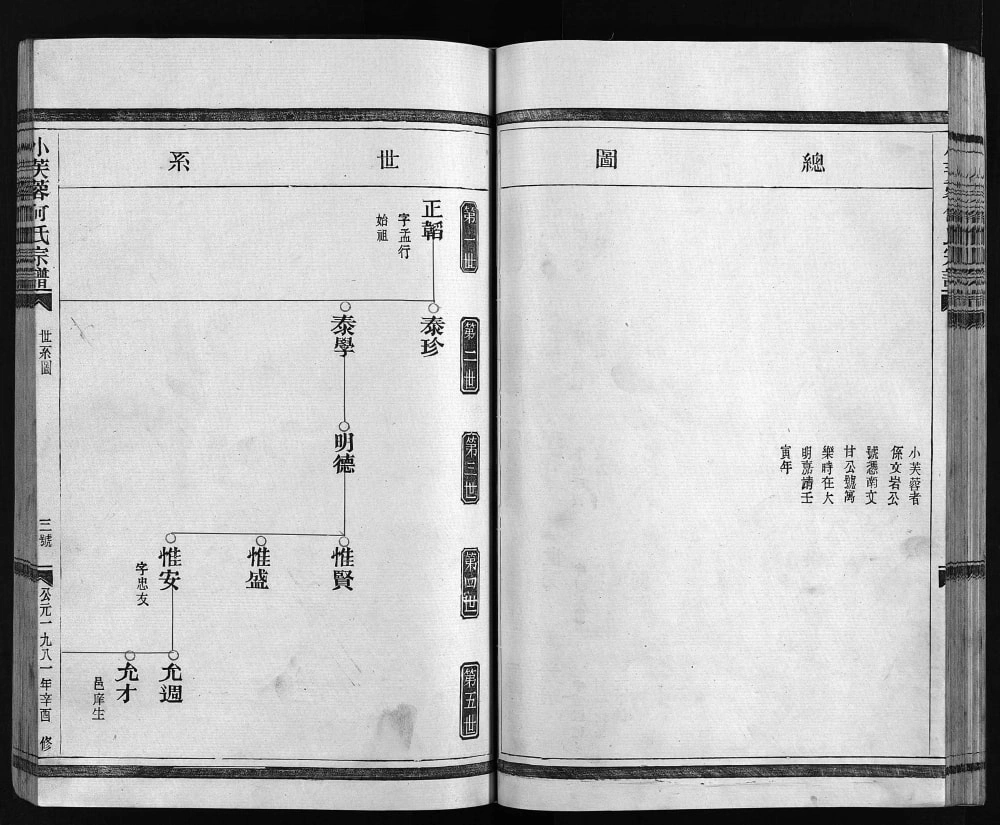 總圖
世系
小芙蓉者
係文岩公
號憑南文
甘公號萬
樂時在大
明嘉請壬
寅年
第一世
正韜
字孟行
始祖
第二世
泰珍
泰學
第三世
明德
第四世
惟賢
惟盛
惟安
字忠友
第五世
允週
允才
邑庠生
小芙蓉何氏宗譜
世系圖
三號
公元一九八一年辛酉 修